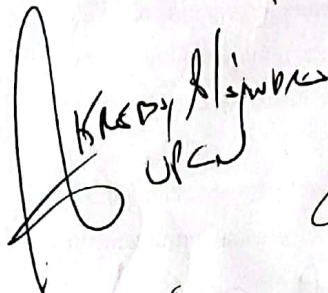 KREDY Alejandro
UPCN